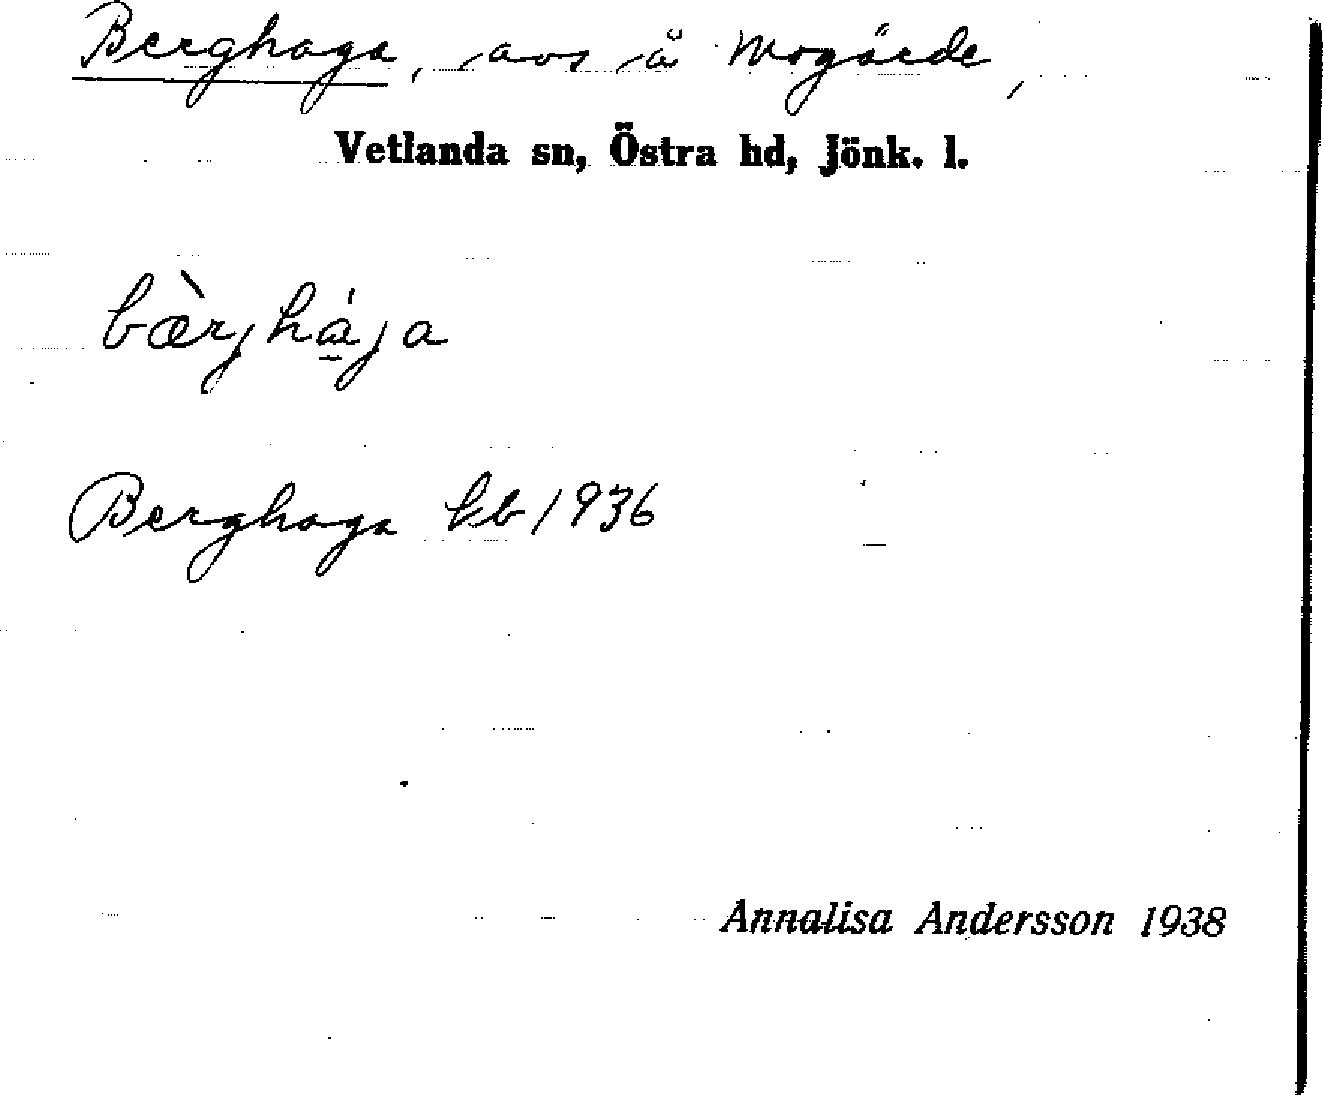 Berghaga, avs å Mogärde,
Vetlanda sn, Östra hd, Jönk. l.
bæ̀rjhá̱ja
Berghaga kb 1936
Annalisa Andersson 1938